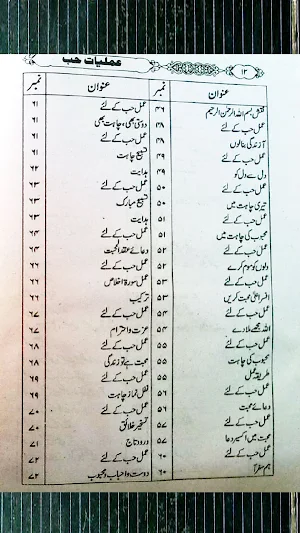 ۱۳
عملیات حب
عنوان نمبر
نقش بسم اللہ الرحمن الرحیم ۴۶
عمل حب کے لئے ۴۸
آ زندگی بنالوں ۴۸
عمل حب کے لئے ۴۹
دل سے دل کو ۴۹
عمل حب کے لئے ۵۰
تیری چاہت میں ۵۰
عمل حب کے لئے ۵۱
محبوب کی چاہت میں ۵۱
عمل حب کے لئے ۵۲
دلوں کو موم کرے ۵۲
عمل حب کے لئے ۵۳
افسر اعلیٰ محبت کریں ۵۳
عمل حب کے لئے ۵۴
اللہ مجھے ملا دے ۵۴
عمل حب کے لئے ۵۵
محبوب کی چاہت ۵۵
طریقہ عمل ۵۵
عمل حب کے لئے ۵۶
دعائے محبت ۵۶
عمل حب کے لئے ۵۷
محبت میں اکسیر دعا ۵۷
عمل حب کے لئے ۶۰
ہم سفر آ ۶۰
عنوان نمبر
عمل حب کے لئے ۶۱
دوستی بھی، چاہت بھی ۶۱
عمل حب کے لئے ۶۱
تسبیح چاہت ۶۱
ہدایت ۶۲
عمل حب کے لئے ۶۳
تسبیح مبارک ۶۳
ہدایت ۶۳
عمل حب کے لئے ۶۴
دعائے عقد المحبت ۶۴
عمل حب کے لئے ۶۶
عمل سورۃ اخلاص ۶۶
ترکیب ۶۶
عمل حب کے لئے ۶۷
عزت واحترام ۶۷
عمل حب کے لئے ۶۸
محبت ہے تو زندگی ۶۸
عمل حب کے لئے ۶۹
نفل نماز چاہت ۶۹
عمل حب کے لئے ۷۰
تسخیر خلائق ۷۰
درود تاج ۷۱
عمل حب کے لئے ۷۲
دوست واحباب ومحبوب ۷۲